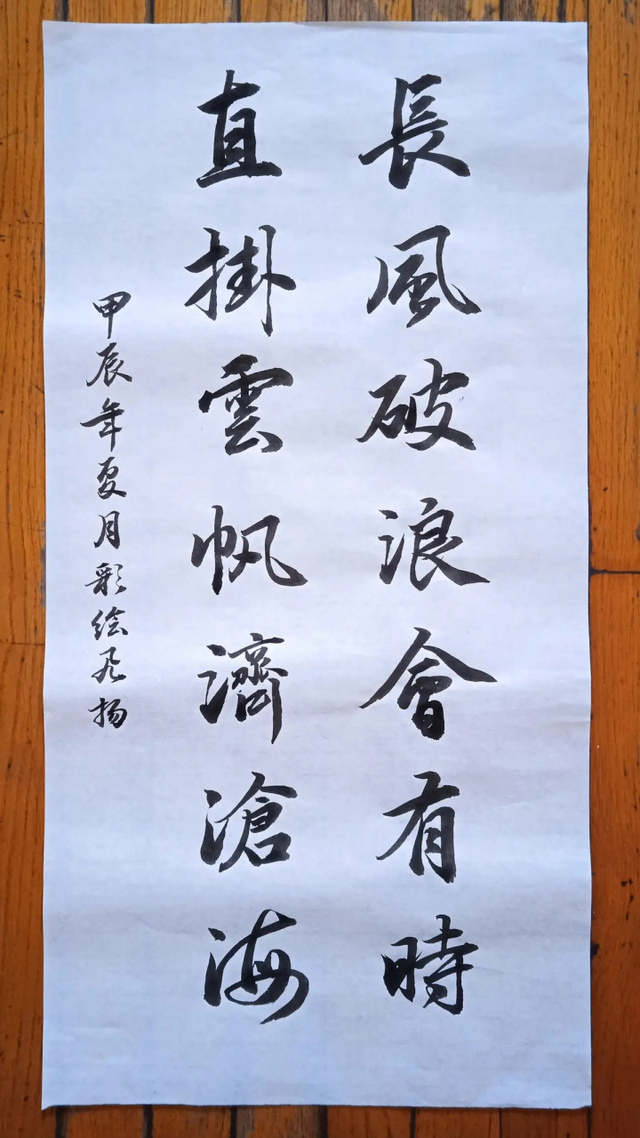 長風破浪會有時
直掛雲帆濟滄海
甲辰年夏月彩绘飞扬